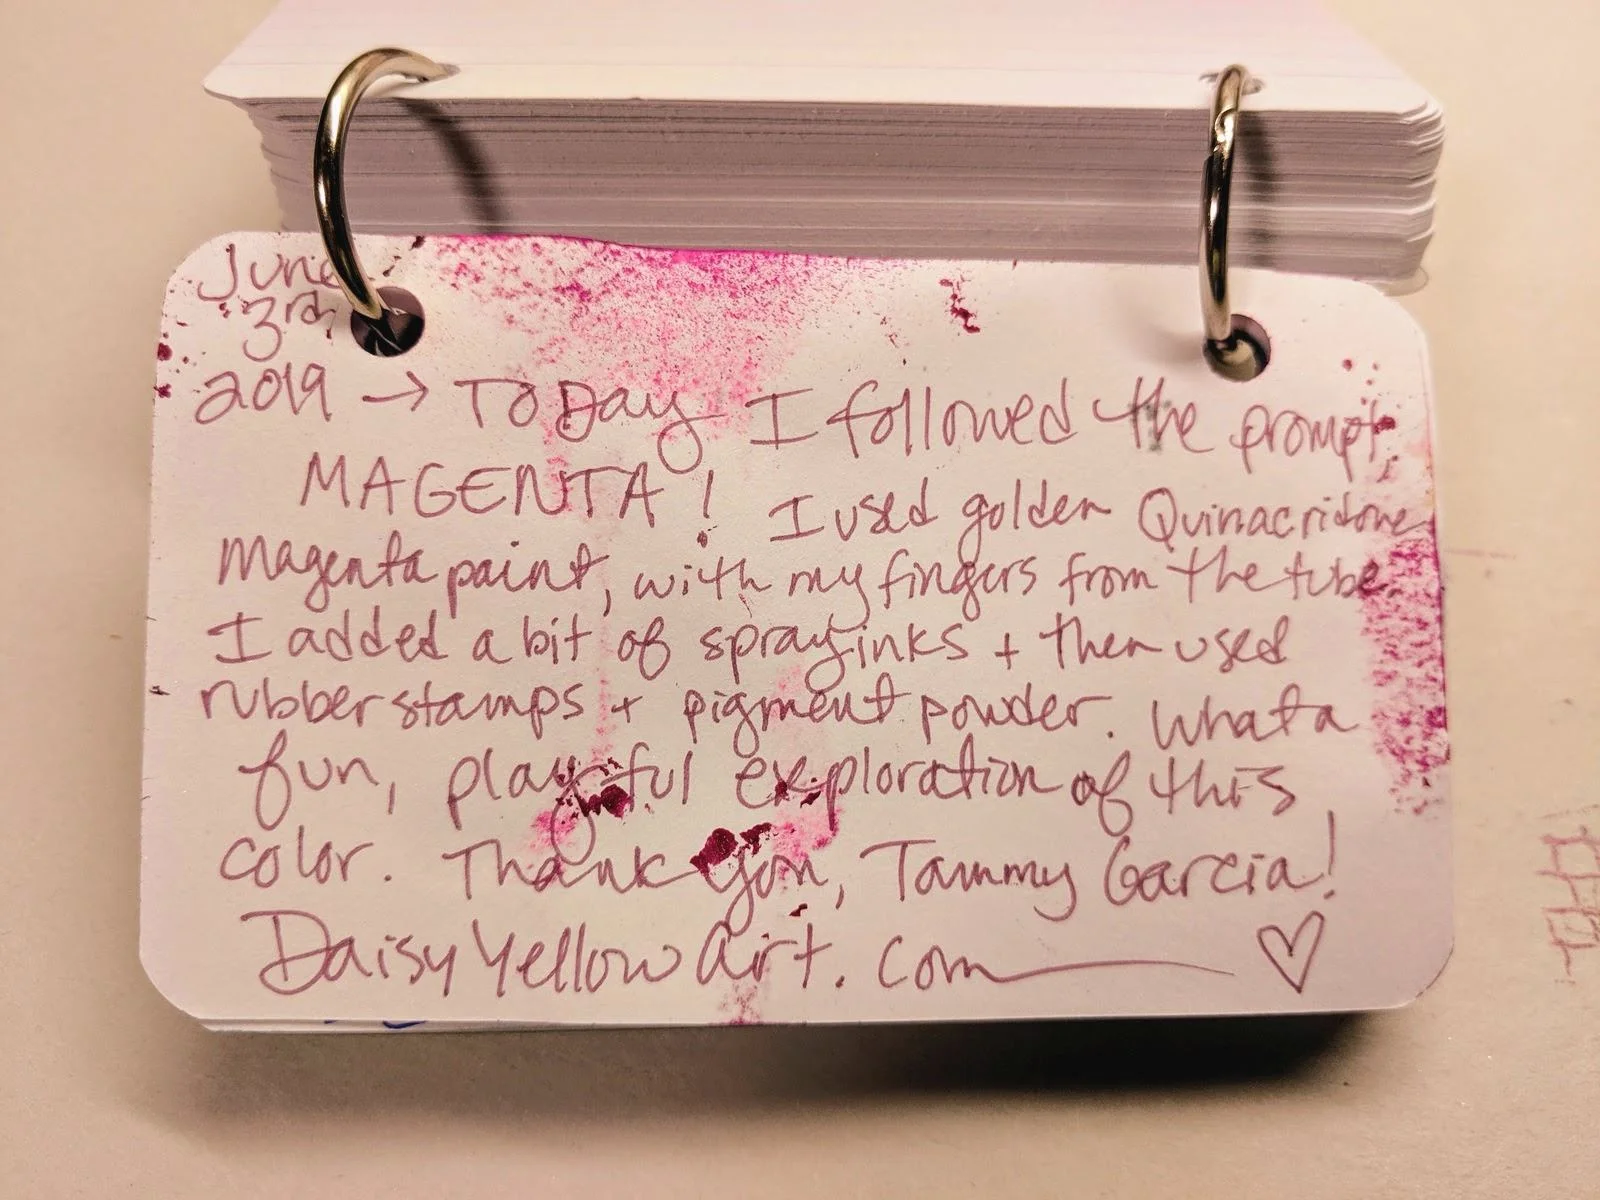 June
3rd
2019 → Today I followed the prompt,
MAGENTA! I used golden Quinacridone
Magenta paint, with my fingers from the tube.
I added a bit of spray inks + then used
rubber stamps + pigment powder. What a
fun, playful exploration of this
color. Thank you, Tammy Garcia!
DaisyYellowArt.com ♡